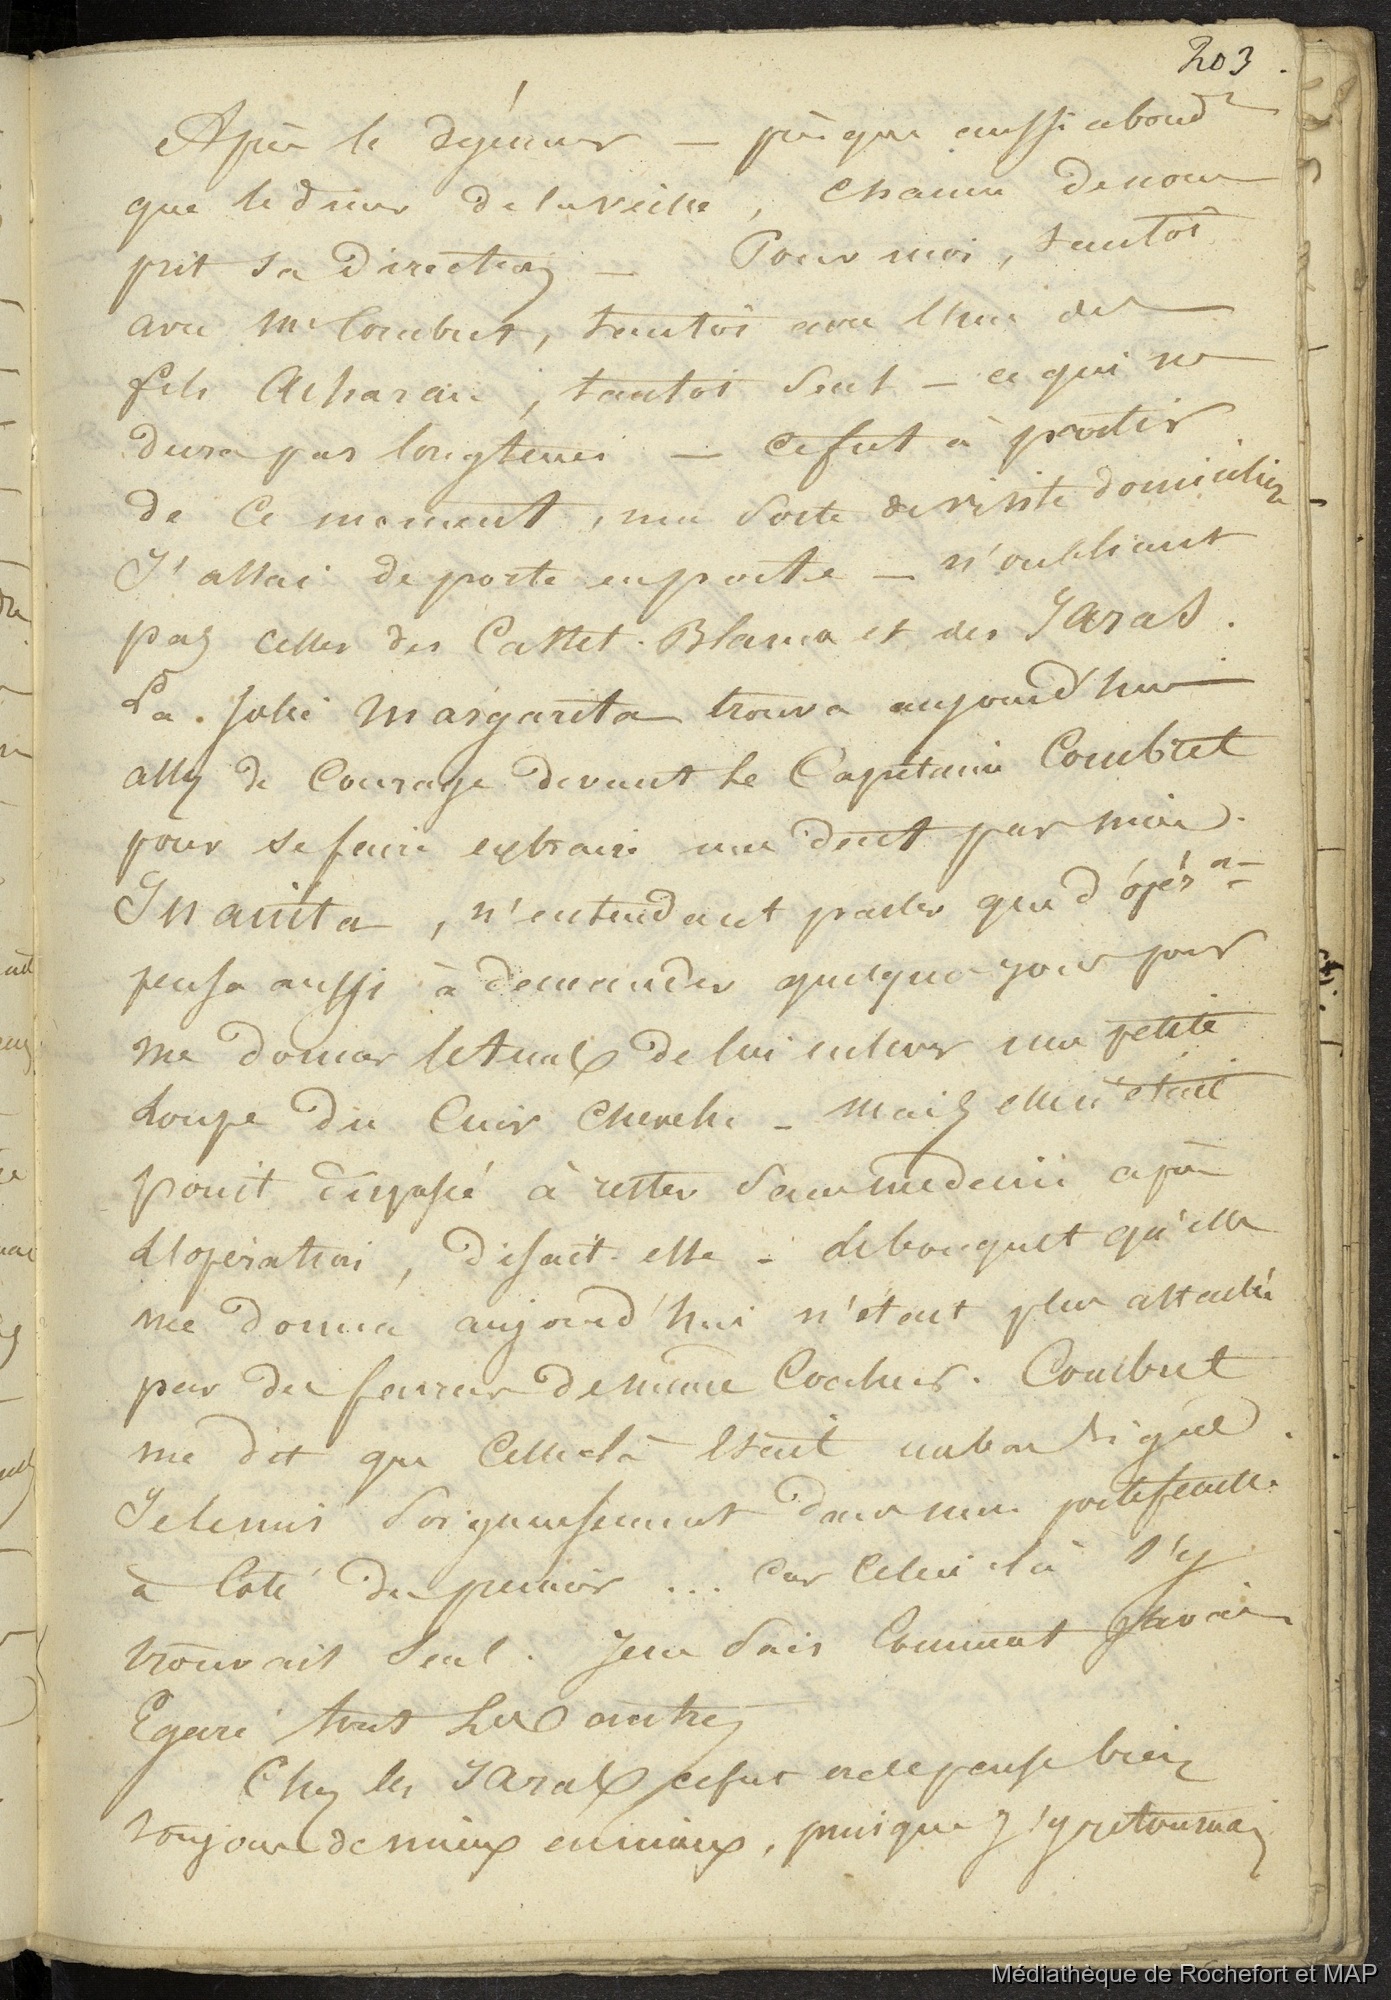 203.
Après le déjeuner — presque aussi abondt
que le diner de la veille, chacun de nous
prit sa direction — Pour moi, tantôt
avec Mr Combret, tantôt avec l'un des
fils Acharaii, tantôt seul — ce qui ne
dura pas longtems — ce fut à partir
de ce moment, une sorte de visite domicilière
J'allai de porte en porte — n'oubliant
pas celles des Castet-Blanca et des Jaras.
La jolie Margarita trouva aujourd'hui
assez de courage devant le Capitaine Combret
pour se faire extraire une dent par moi.
Juanita, n'entendant parler que d'opéron
pensa aussi à demander quelque jour pour
me donner le tems de lui enlever une petite
Loupe du Cuir Chevelu — mais elle n'était
point disposée à rester sans médecin après
l'opération, disait-elle — le bouquet qu'elle
me donna aujourd'hui n'était plus attaché
par des faveurs de même Couleur. Combret
me dit que celle-là était un bon signe.
Je le mis soigneusement dans mon portefeuille
à coté du premier ... car celui-là s'y
trouvait seul. Je ne sais comment j'avais
Egaré tout les autres
Chez les Jaras ce fut je pense bien
toujours de mieux en mieux, puisque j'y retournai
Médiathèque de Rochefort et MAP